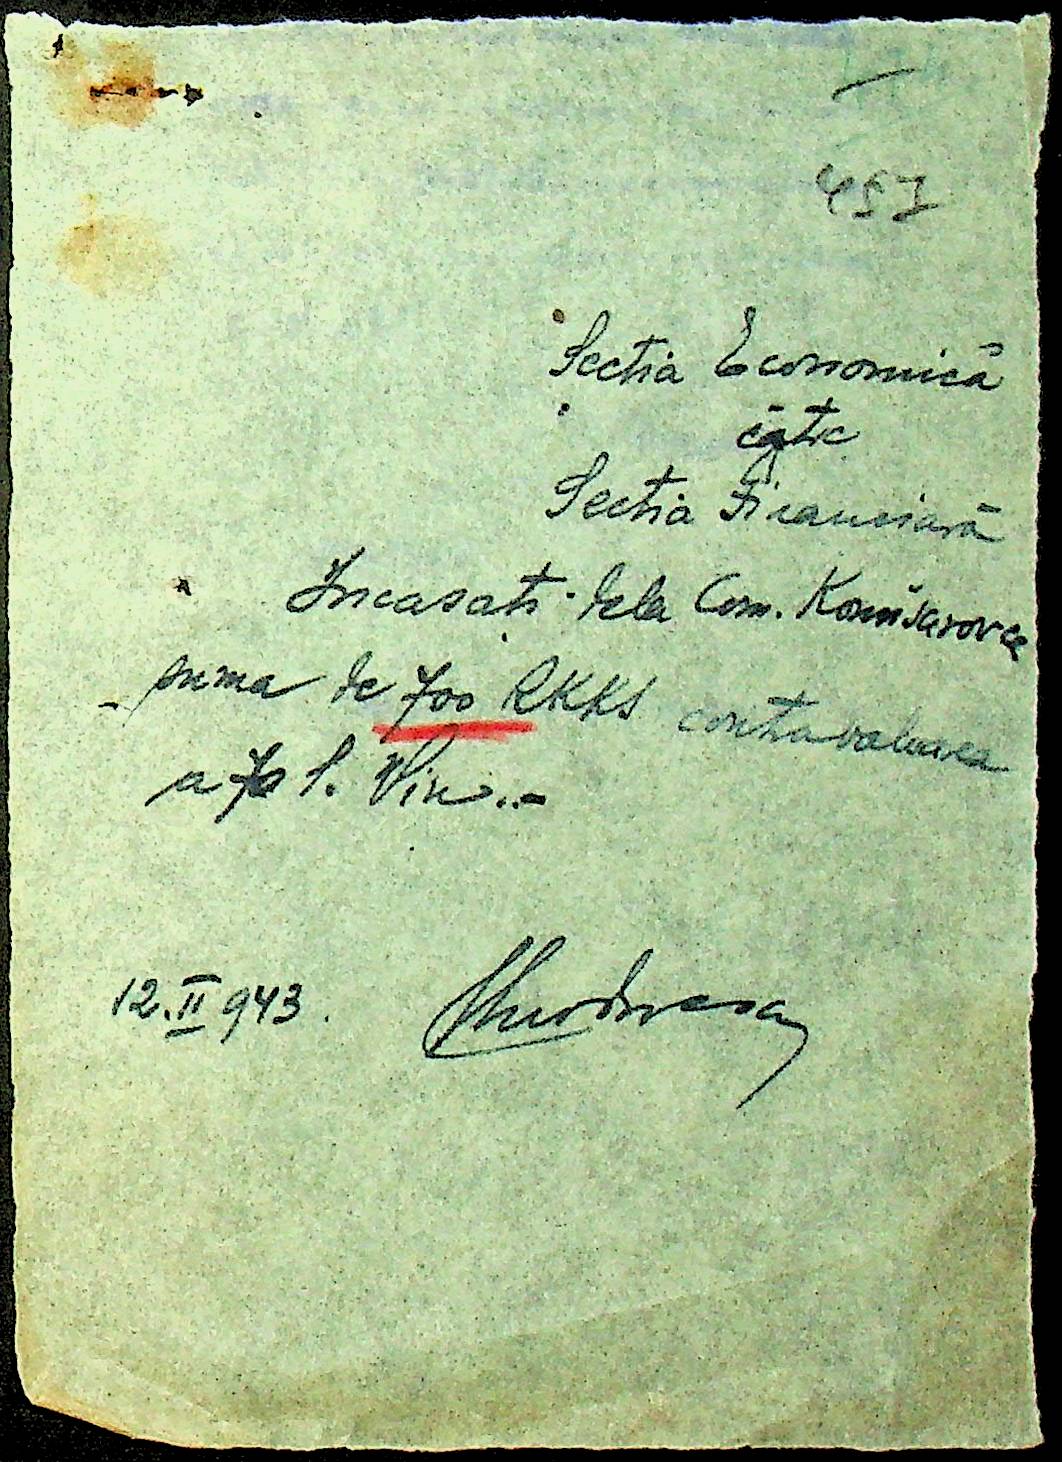 457
Secția Economică
către
Secția Financiară
Incasați dela Com. Komisarovca
suma de 700 RKKS contravaloarea
a 70 l. Vin..-
12.II 943.